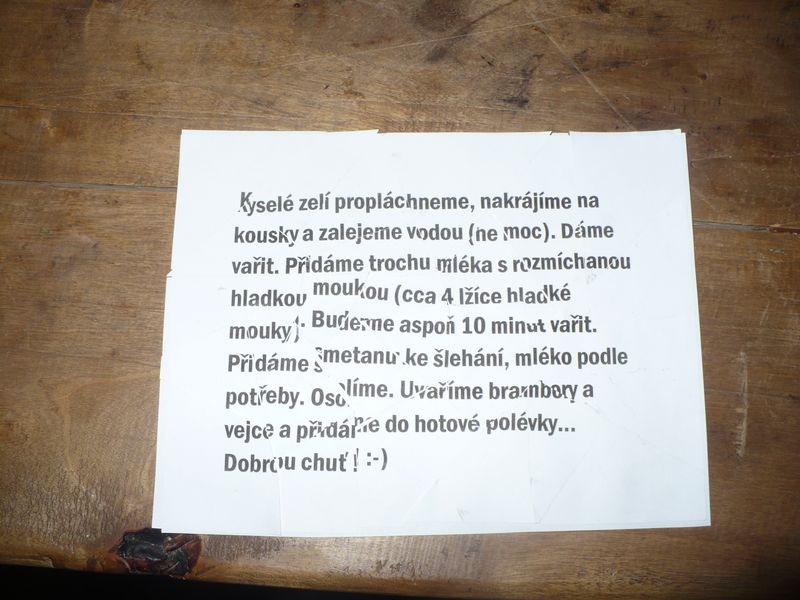 Kyselé zelí propláchneme, nakrájíme na
kousky a zalejeme vodou (ne moc). Dáme
vařit. Přidáme trochu mléka s rozmíchanou
hladkou moukou (cca 4 lžíce hladké
mouky). Budeme aspoň 10 minut vařit.
Přidáme smetanu ke šlehání, mléko podle
potřeby. Osolíme. Uvaříme brambory a
vejce a přidáme do hotové polévky...
Dobrou chuť! :-)